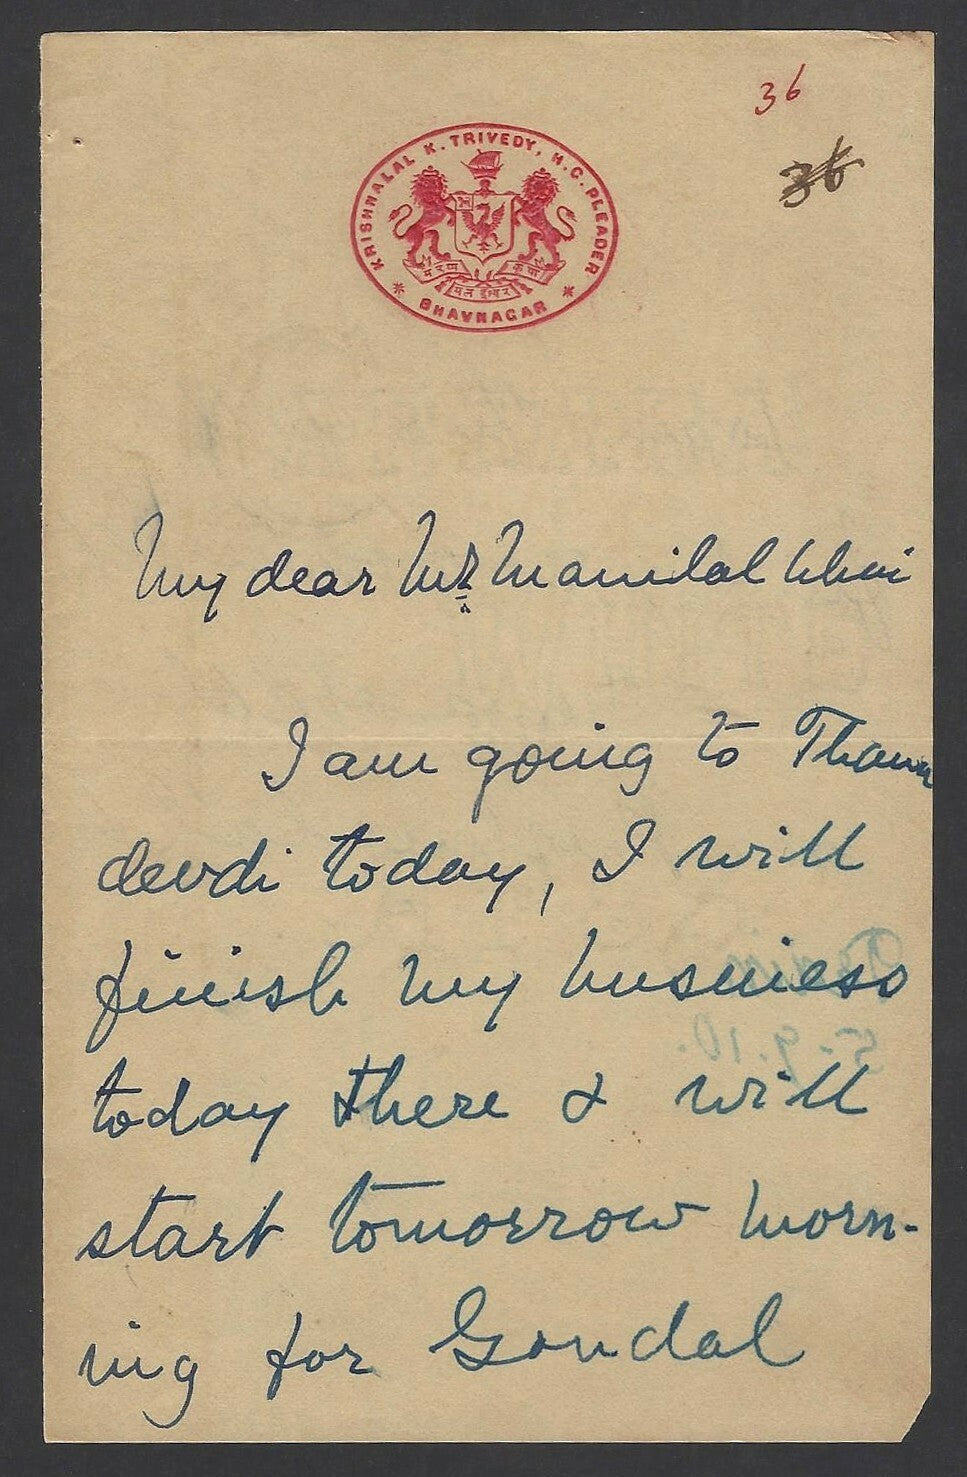 36
36
KRISHNALAL K. TRIVEDY, H.C. PLEADER
* BHAVNAGAR *
My dear Mr Manilal bhai
I am going to Thana
devdi today, I will
finish my business
today there & will
start tomorrow morn-
ing for Gondal
5.9.10.